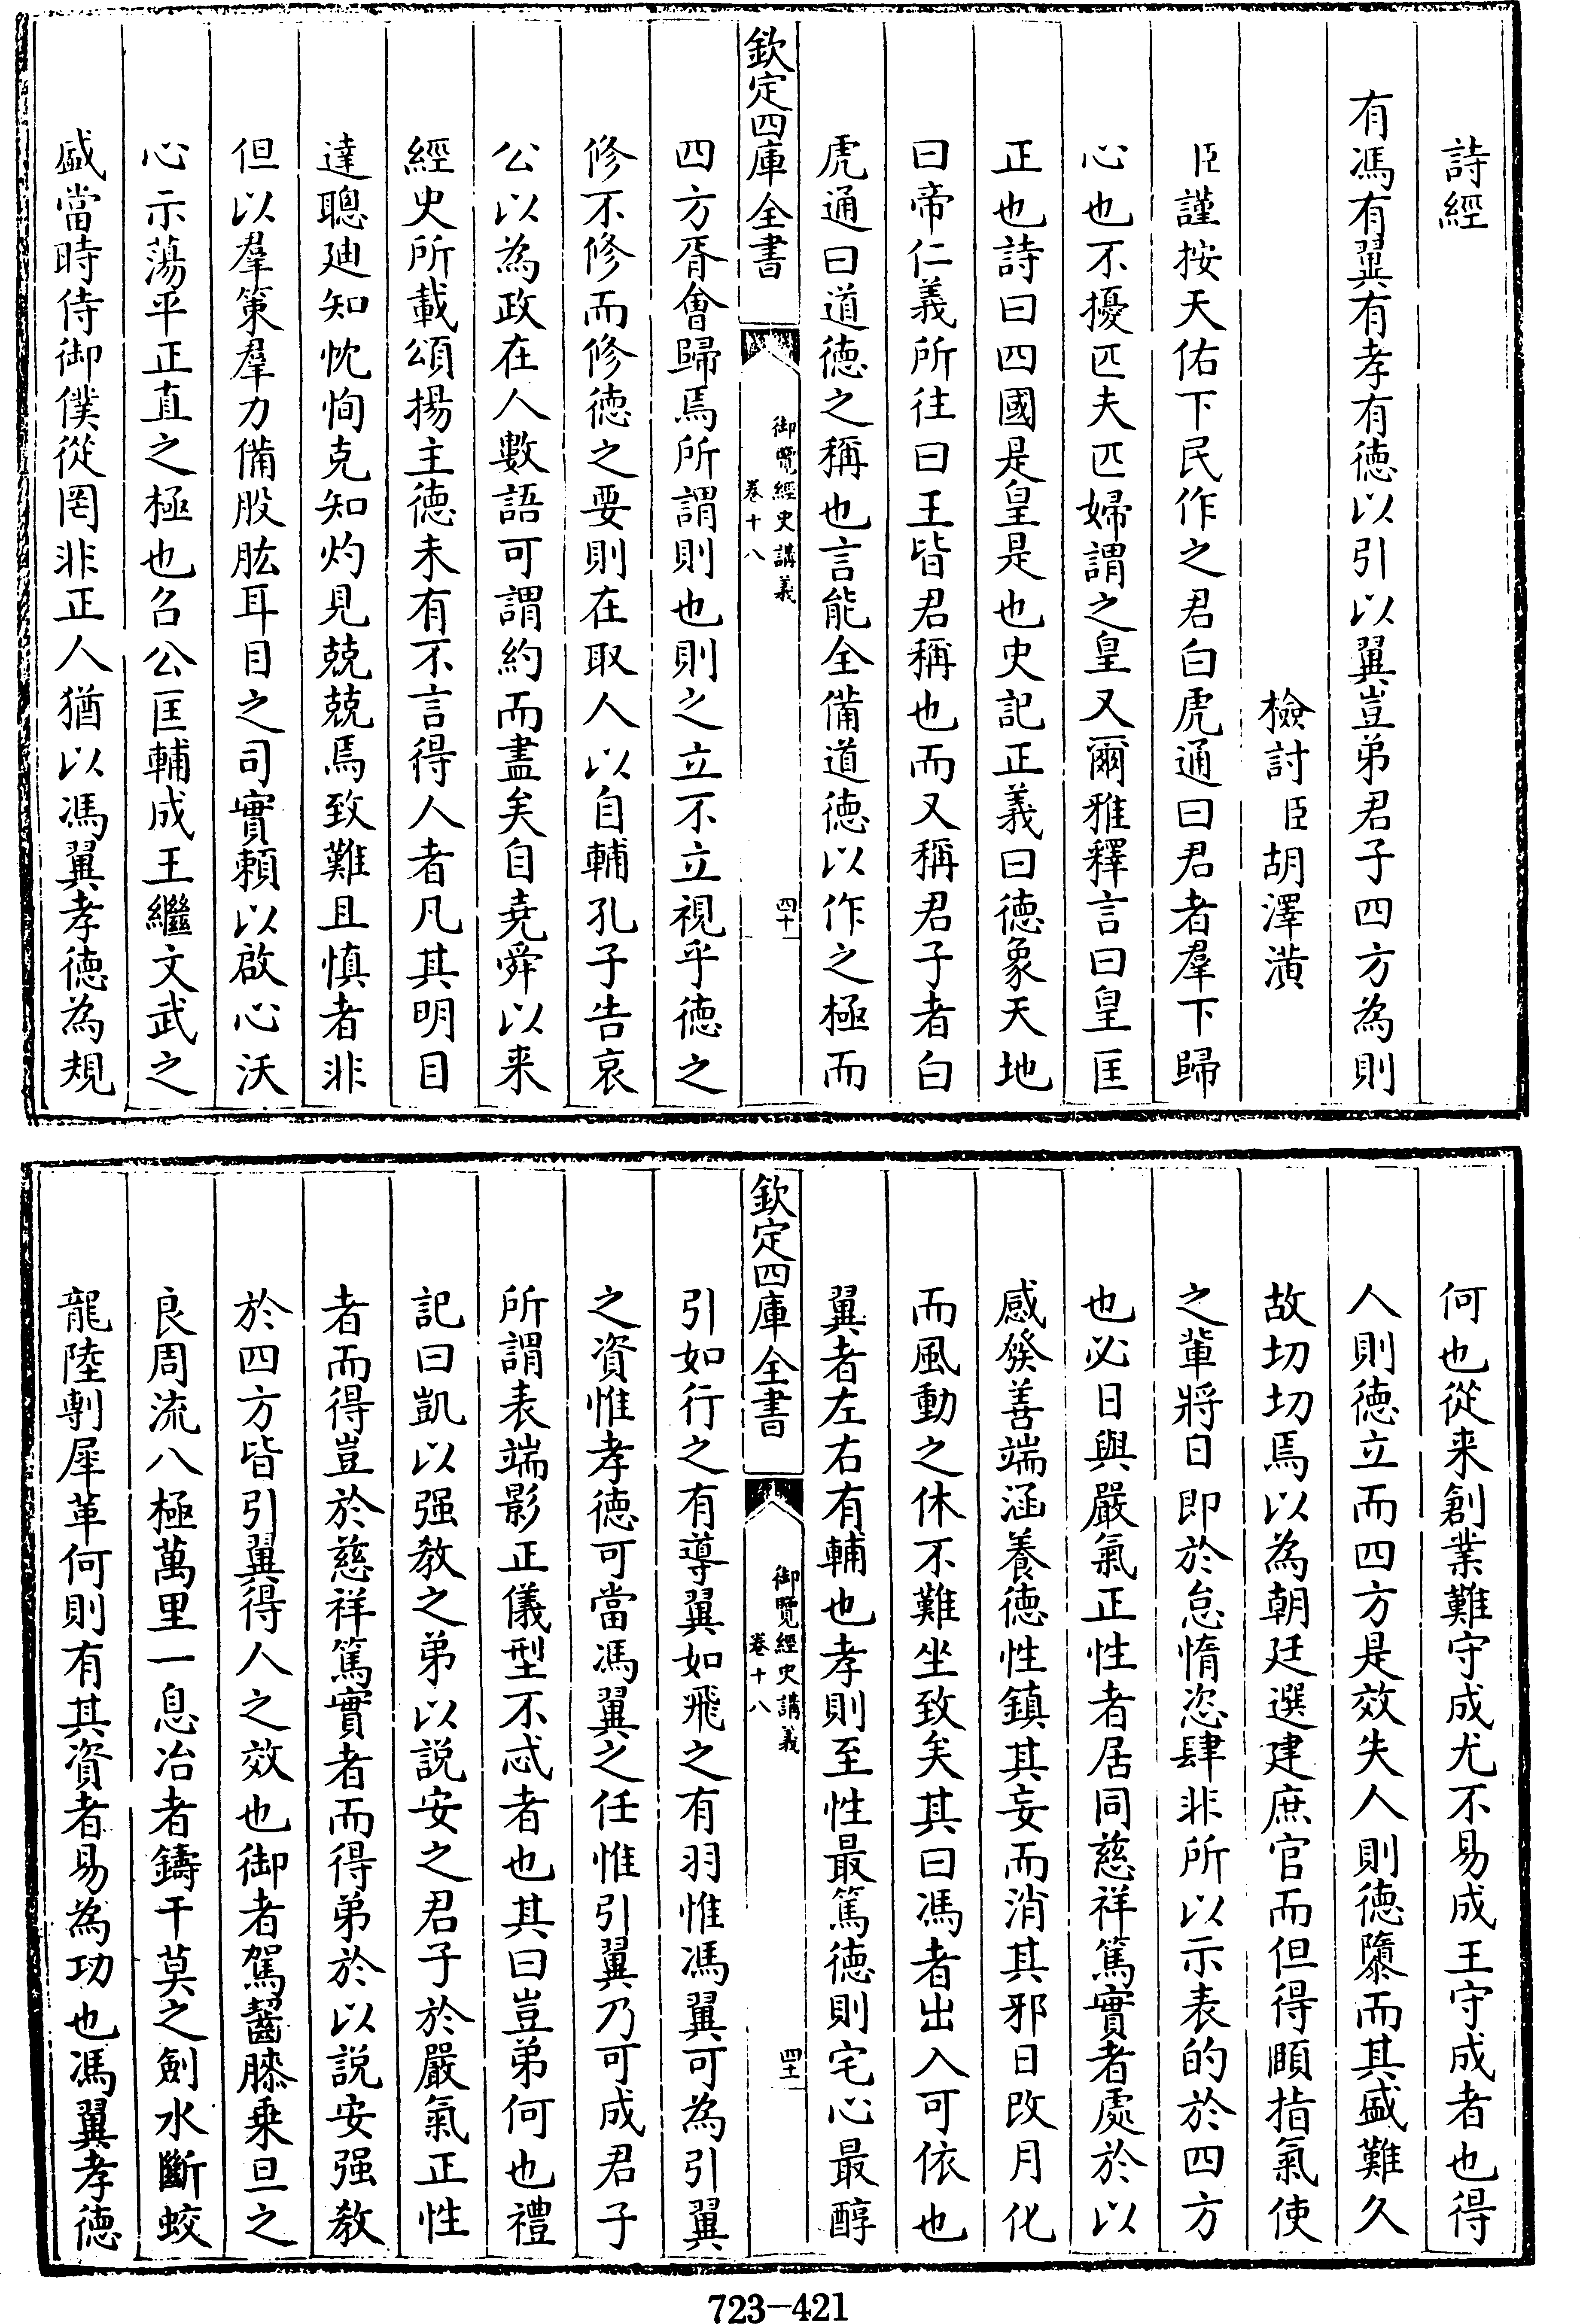 詩經
有馮有翼有孝有德以引以翼豈弟君子四方為則
檢討臣胡澤潢
臣謹按天佑下民作之君白虎通曰君者羣下歸
心也不擾匹夫匹婦謂之皇又爾雅釋言曰皇匡
正也詩曰四國是皇是也史記正義曰德象天地
曰帝仁義所往曰王皆君稱也而又稱君子者白
虎通曰道德之稱也言能全備道德以作之極而
欽定四庫全書
御覽經史講義
卷十八
四十
四方胥會歸焉所謂則也則之立不立視乎德之
修不修而修德之要則在取人以自輔孔子告哀
公以為政在人數語可謂約而盡矣自堯舜以来
經史所載頌揚主德未有不言得人者凡其明目
達聰廸知忱恂克知灼見兢兢焉致難且慎者非
但以羣策羣力備股肱耳目之司實頼以啟心沃
心示蕩平正直之極也召公匡輔成王繼文武之
盛當時侍御僕從罔非正人猶以馮翼孝德為規
何也從来創業難守成尤不易成王守成者也得
人則德立而四方是效失人則德隳而其盛難久
故切切焉以為朝廷選建庶官而但得頤指氣使
之輩將日即於怠惰恣肆非所以示表的於四方
也必日與嚴氣正性者居同慈祥篤實者處於以
感發善端涵養德性鎮其妄而消其邪日改月化
而風動之休不難坐致矣其曰馮者出入可依也
翼者左右有輔也孝則至性最篤德則宅心最醇
欽定四庫全書
御覽經史講義
卷十八
四十一
引如行之有導翼如飛之有羽惟馮翼可為引翼
之資惟孝德可當馮翼之任惟引翼乃可成君子
所謂表端影正儀型不忒者也其曰豈弟何也禮
記曰凱以强教之弟以說安之君子於嚴氣正性
者而得豈於慈祥篤實者而得弟於以說安强教
於四方皆引翼得人之效也御者駕齧膝乗旦之
良周流八極萬里一息冶者鑄干莫之劍水斷蛟
龍陸剸犀革何則有其資者易為功也馮翼孝德
723-421